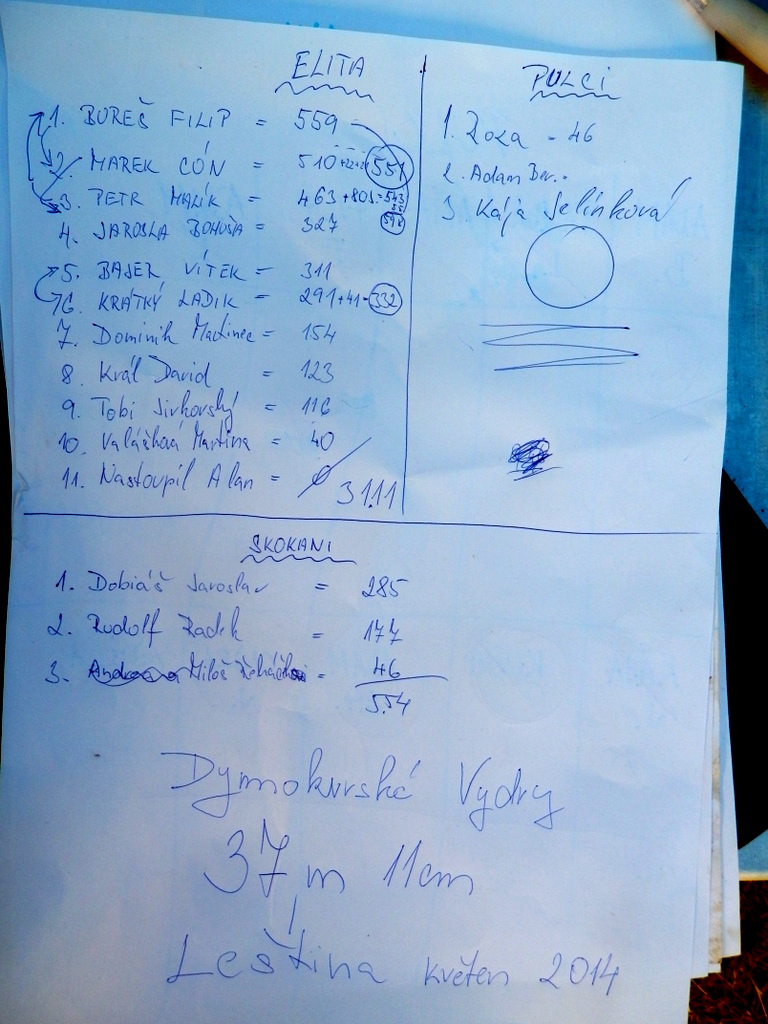 ELITA
1. BUREŠ FILIP = 559
2. MAREK CÓN = 510 551
3. PETR MALÍK = 463
4. JAROSLA BOHUŠA = 327
5. BAJER VÍTEK = 311
6. KRÁTKÝ LADIK = 291+41=332
7. Dominik Martinec = 154
8. Král David = 123
9. Tobi Jirkovský = 116
10. Valášková Martina = 40
11. Nastoupil Alan = 0
3111
PULCI
1. Roza - 46
2. Adam Ber..
3 Kája Jelínková
SKOKANI
1. Dobiáš Jaroslav = 285
2. Rudolf Radek = 177
3. Miloš = 46
554
Dymokurské Vydry
37m 11cm
Leština květen 2014